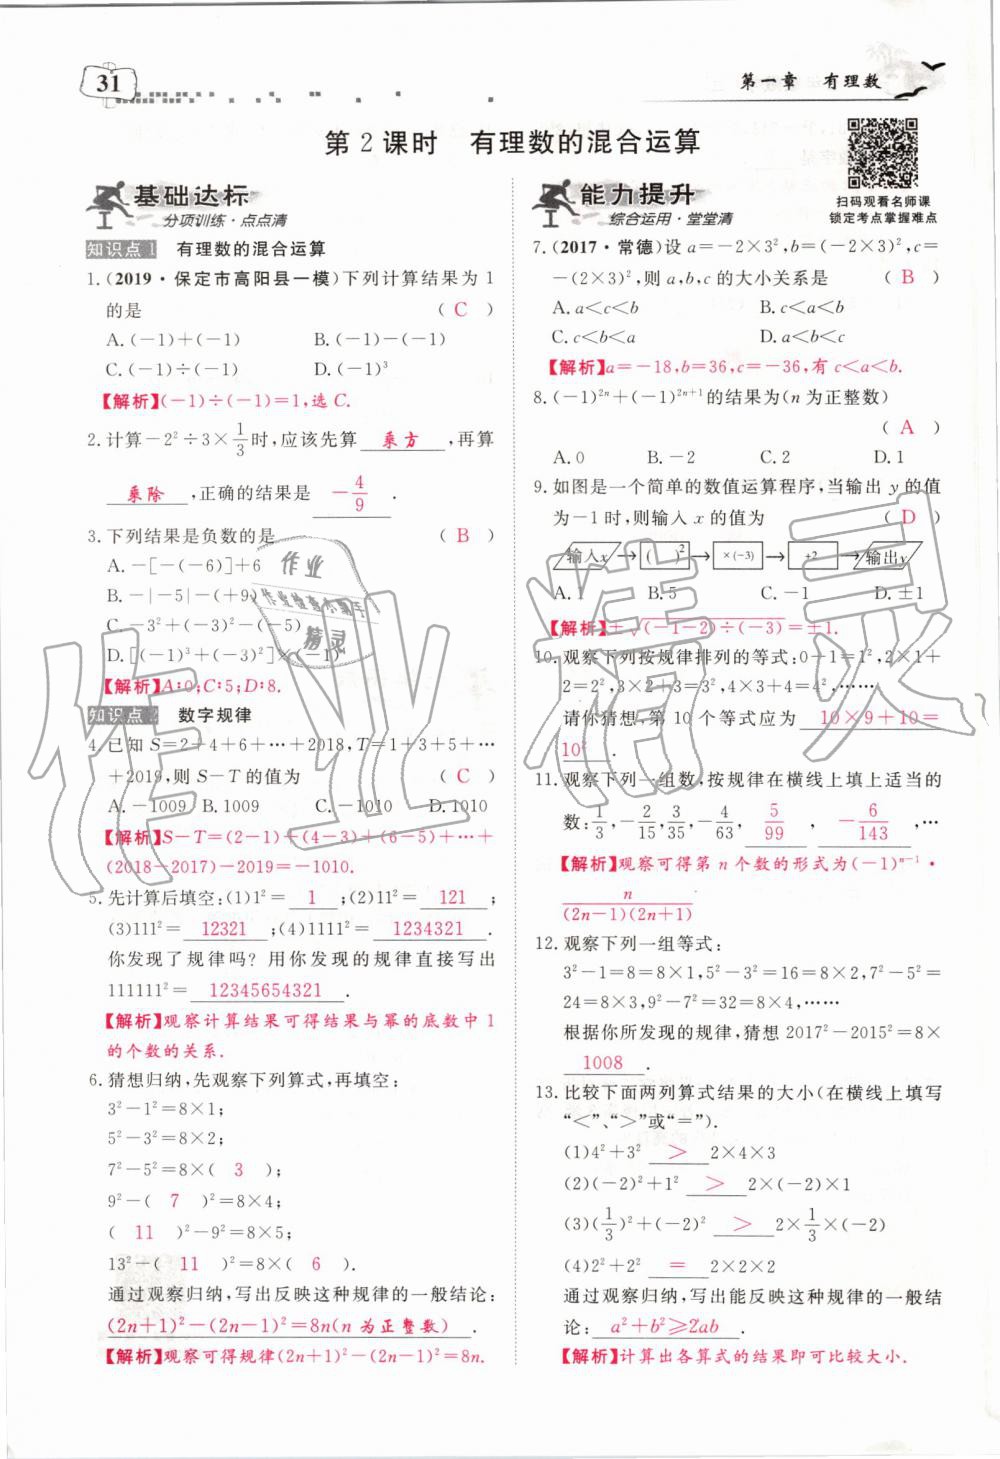 31
第一章 有理数
第 2 课时 有理数的混合运算
基础达标
分项训练·点点清
知识点1 有理数的混合运算
1.(2019·保定市高阳县一模)下列计算结果为 1
的是 ( C )
A.(-1)+(-1) B.(-1)-(-1)
C.(-1)÷(-1) D.(-1)³
【解析】(-1)÷(-1)=1,选 C.
2.计算-2²÷3×1/3时,应该先算 乘方 ,再算
乘除 ,正确的结果是 -4/9 .
3.下列结果是负数的是 ( B )
A.-[-(-6)]+6
B.-|-5|-(+9)
C.-3²+(-3)²-(-5)
D.[(-1)³+(-3)²]×(-1)
【解析】A:0;C:5;D:8.
知识点2 数字规律
4.已知 S=2+4+6+…+2018,T=1+3+5+…
+2019,则 S-T 的值为 ( C )
A.-1009 B.1009 C.-1010 D.1010
【解析】S-T=(2-1)+(4-3)+(6-5)+…+
(2018-2017)-2019=-1010.
5.先计算后填空:(1)1²= 1 ;(2)11²= 121 ;
(3)111²= 12321 ;(4)1111²= 1234321 .
你发现了规律吗?用你发现的规律直接写出
111111²= 12345654321 .
【解析】观察计算结果可得结果与幂的底数中 1
的个数的关系.
6.猜想归纳,先观察下列算式,再填空:
3²-1²=8×1;
5²-3²=8×2;
7²-5²=8×( 3 );
9²-( 7 )²=8×4;
( 11 )²-9²=8×5;
13²-( 11 )²=8×( 6 ).
通过观察归纳,写出反映这种规律的一般结论:
(2n+1)²-(2n-1)²=8n(n 为正整数) .
【解析】观察可得规律(2n+1)²-(2n-1)²=8n.
能力提升
综合运用·堂堂清
扫码观看名师课
锁定考点掌握难点
7.(2017·常德)设 a=-2×3²,b=(-2×3)²,c=
-(2×3)²,则 a,b,c 的大小关系是 ( B )
A.a<c<b B.c<a<b
C.c<b<a D.a<b<c
【解析】a=-18,b=36,c=-36,有 c<a<b.
8.(-1)²ⁿ+(-1)²ⁿ⁺¹的结果为(n 为正整数)
( A )
A.0 B.-2 C.2 D.1
9.如图是一个简单的数值运算程序,当输出 y 的值
为-1时,则输入 x 的值为 ( D )
输入x → ( )² → ×(-3) → +2 → 输出y
A.1 B.5 C.-1 D.±1
【解析】±√(-1-2)÷(-3)=±1.
10.观察下列按规律排列的等式:0+1=1²,2×1+
2=2²,3×2+3=3²,4×3+4=4²,……
请你猜想,第 10 个等式应为 10×9+10=
10² .
11.观察下列一组数,按规律在横线上填上适当的
数:1/3,-2/15,3/35,-4/63, 5/99 , -6/143 ,…
【解析】观察可得第 n 个数的形式为(-1)ⁿ⁻¹·
n/(2n-1)(2n+1)
12.观察下列一组等式:
3²-1=8=8×1,5²-3²=16=8×2,7²-5²=
24=8×3,9²-7²=32=8×4,……
根据你所发现的规律,猜想 2017²-2015²=8×
1008 .
13.比较下面两列算式结果的大小(在横线上填写
“<”、“>”或“=”).
(1)4²+3² > 2×4×3
(2)(-2)²+1² > 2×(-2)×1
(3)(1/3)²+(-2)² > 2×1/3×(-2)
(4)2²+2² = 2×2×2
通过观察归纳,写出能反映这种规律的一般结
论: a²+b²≥2ab .
【解析】计算出各算式的结果即可比较大小.
作业
作业检查小助手
精灵
作业精灵